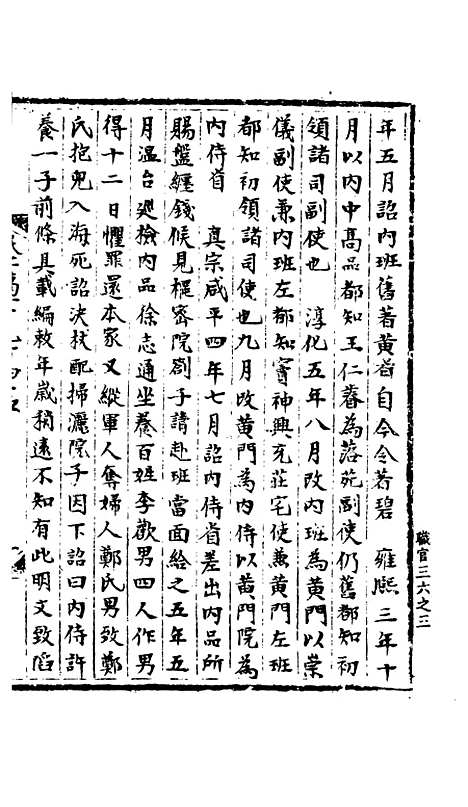 年五月詔内班舊著黄㫖自今令若碧　雍熙三年十
月以内中髙品都知王仁睿為落苑副使仍舊都知初
領諸司副使也　淳化五年八月改内班為黄門以崇
儀副使兼内班左都知竇神興充莊宅使兼黄門左班
都知初領諸司使也九月改黄門為内侍以黄門院為
内侍省　真宗咸平四年七月詔内侍省差出内品所
賜盤纏錢候見樞密院劄子請赴班當面給之五年五
月温台廵檢内品徐志通坐養百姓李歡男四人作男
得十二日懼罪還本家又縱軍人奪婦人鄭氏男致鄭
氏抱兒入海死詔決扙配掃灑院子因下詔曰内侍許
養一子前條具載編敕年歲稍遠不知有此明文致䧟
職官三六之三